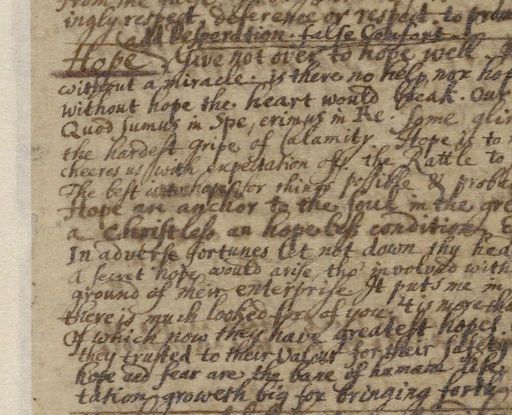 ingly respect. deference or respect. to
call Desperation. false Comfort
Hope Give not over to hope well
without a miracle. is there no help, nor hop
without hope the heart would break. Our
Quod sumus in Spe, erimus in Re. Some
the hardest gripe of Calamity. Hope is to
cheeres us with expectation off. the Rattle to
The best for things possible & proba
Hope an anchor to the soul in the gre
a Christless an hopeless condition.
In adverse fortunes let not down thy hea
A secret hope would arise tho' involved with
ground of their enterprise. It puts me in
there is much looked for of you. 'tis more tha
Of which now they have greatest hopes.
they trusted to their Valour for their safety
hope and fear are the bane of humane life.
tation groweth big for bringing forth